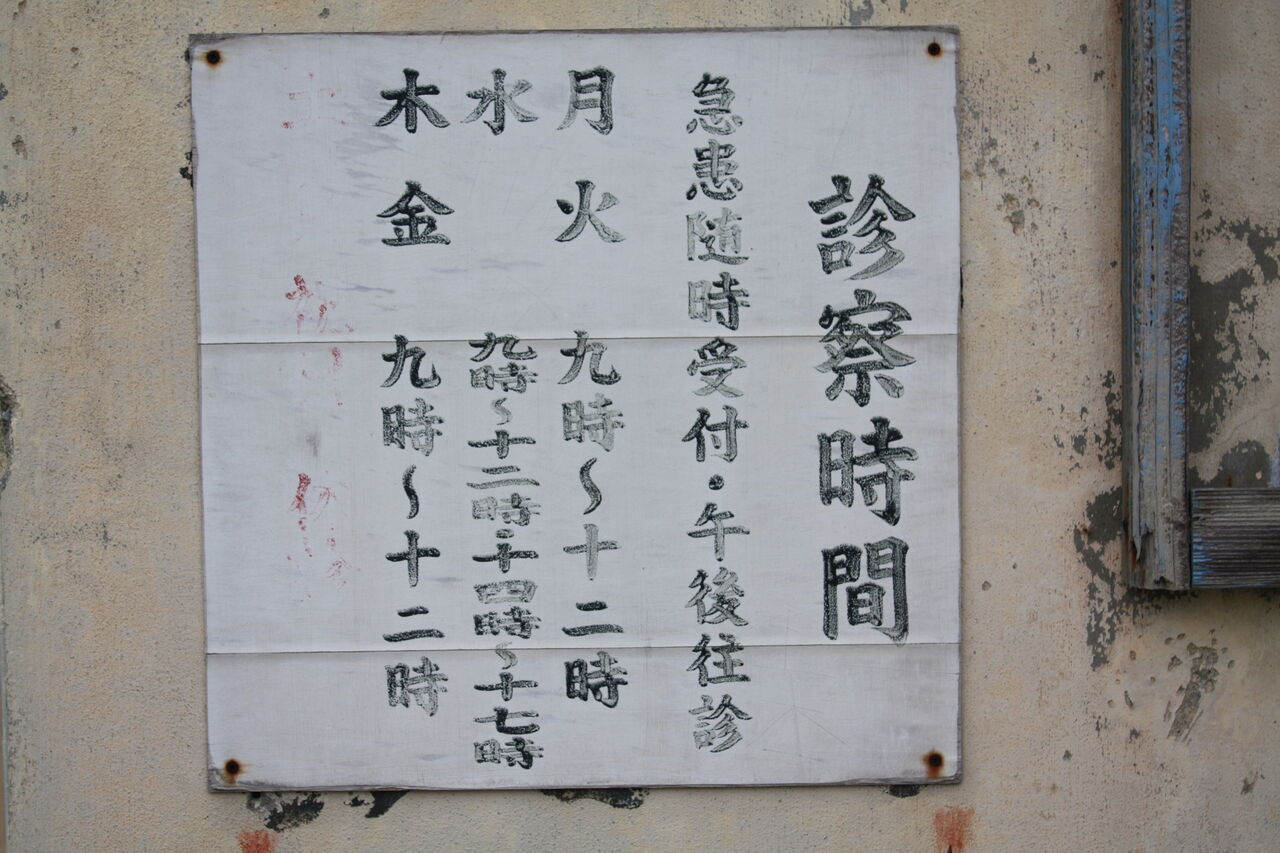 診察時間
急患随時受付・午後往診
月火 九時〜十二時
水 九時〜十二時・十四時〜十七時
木金 九時〜十二時